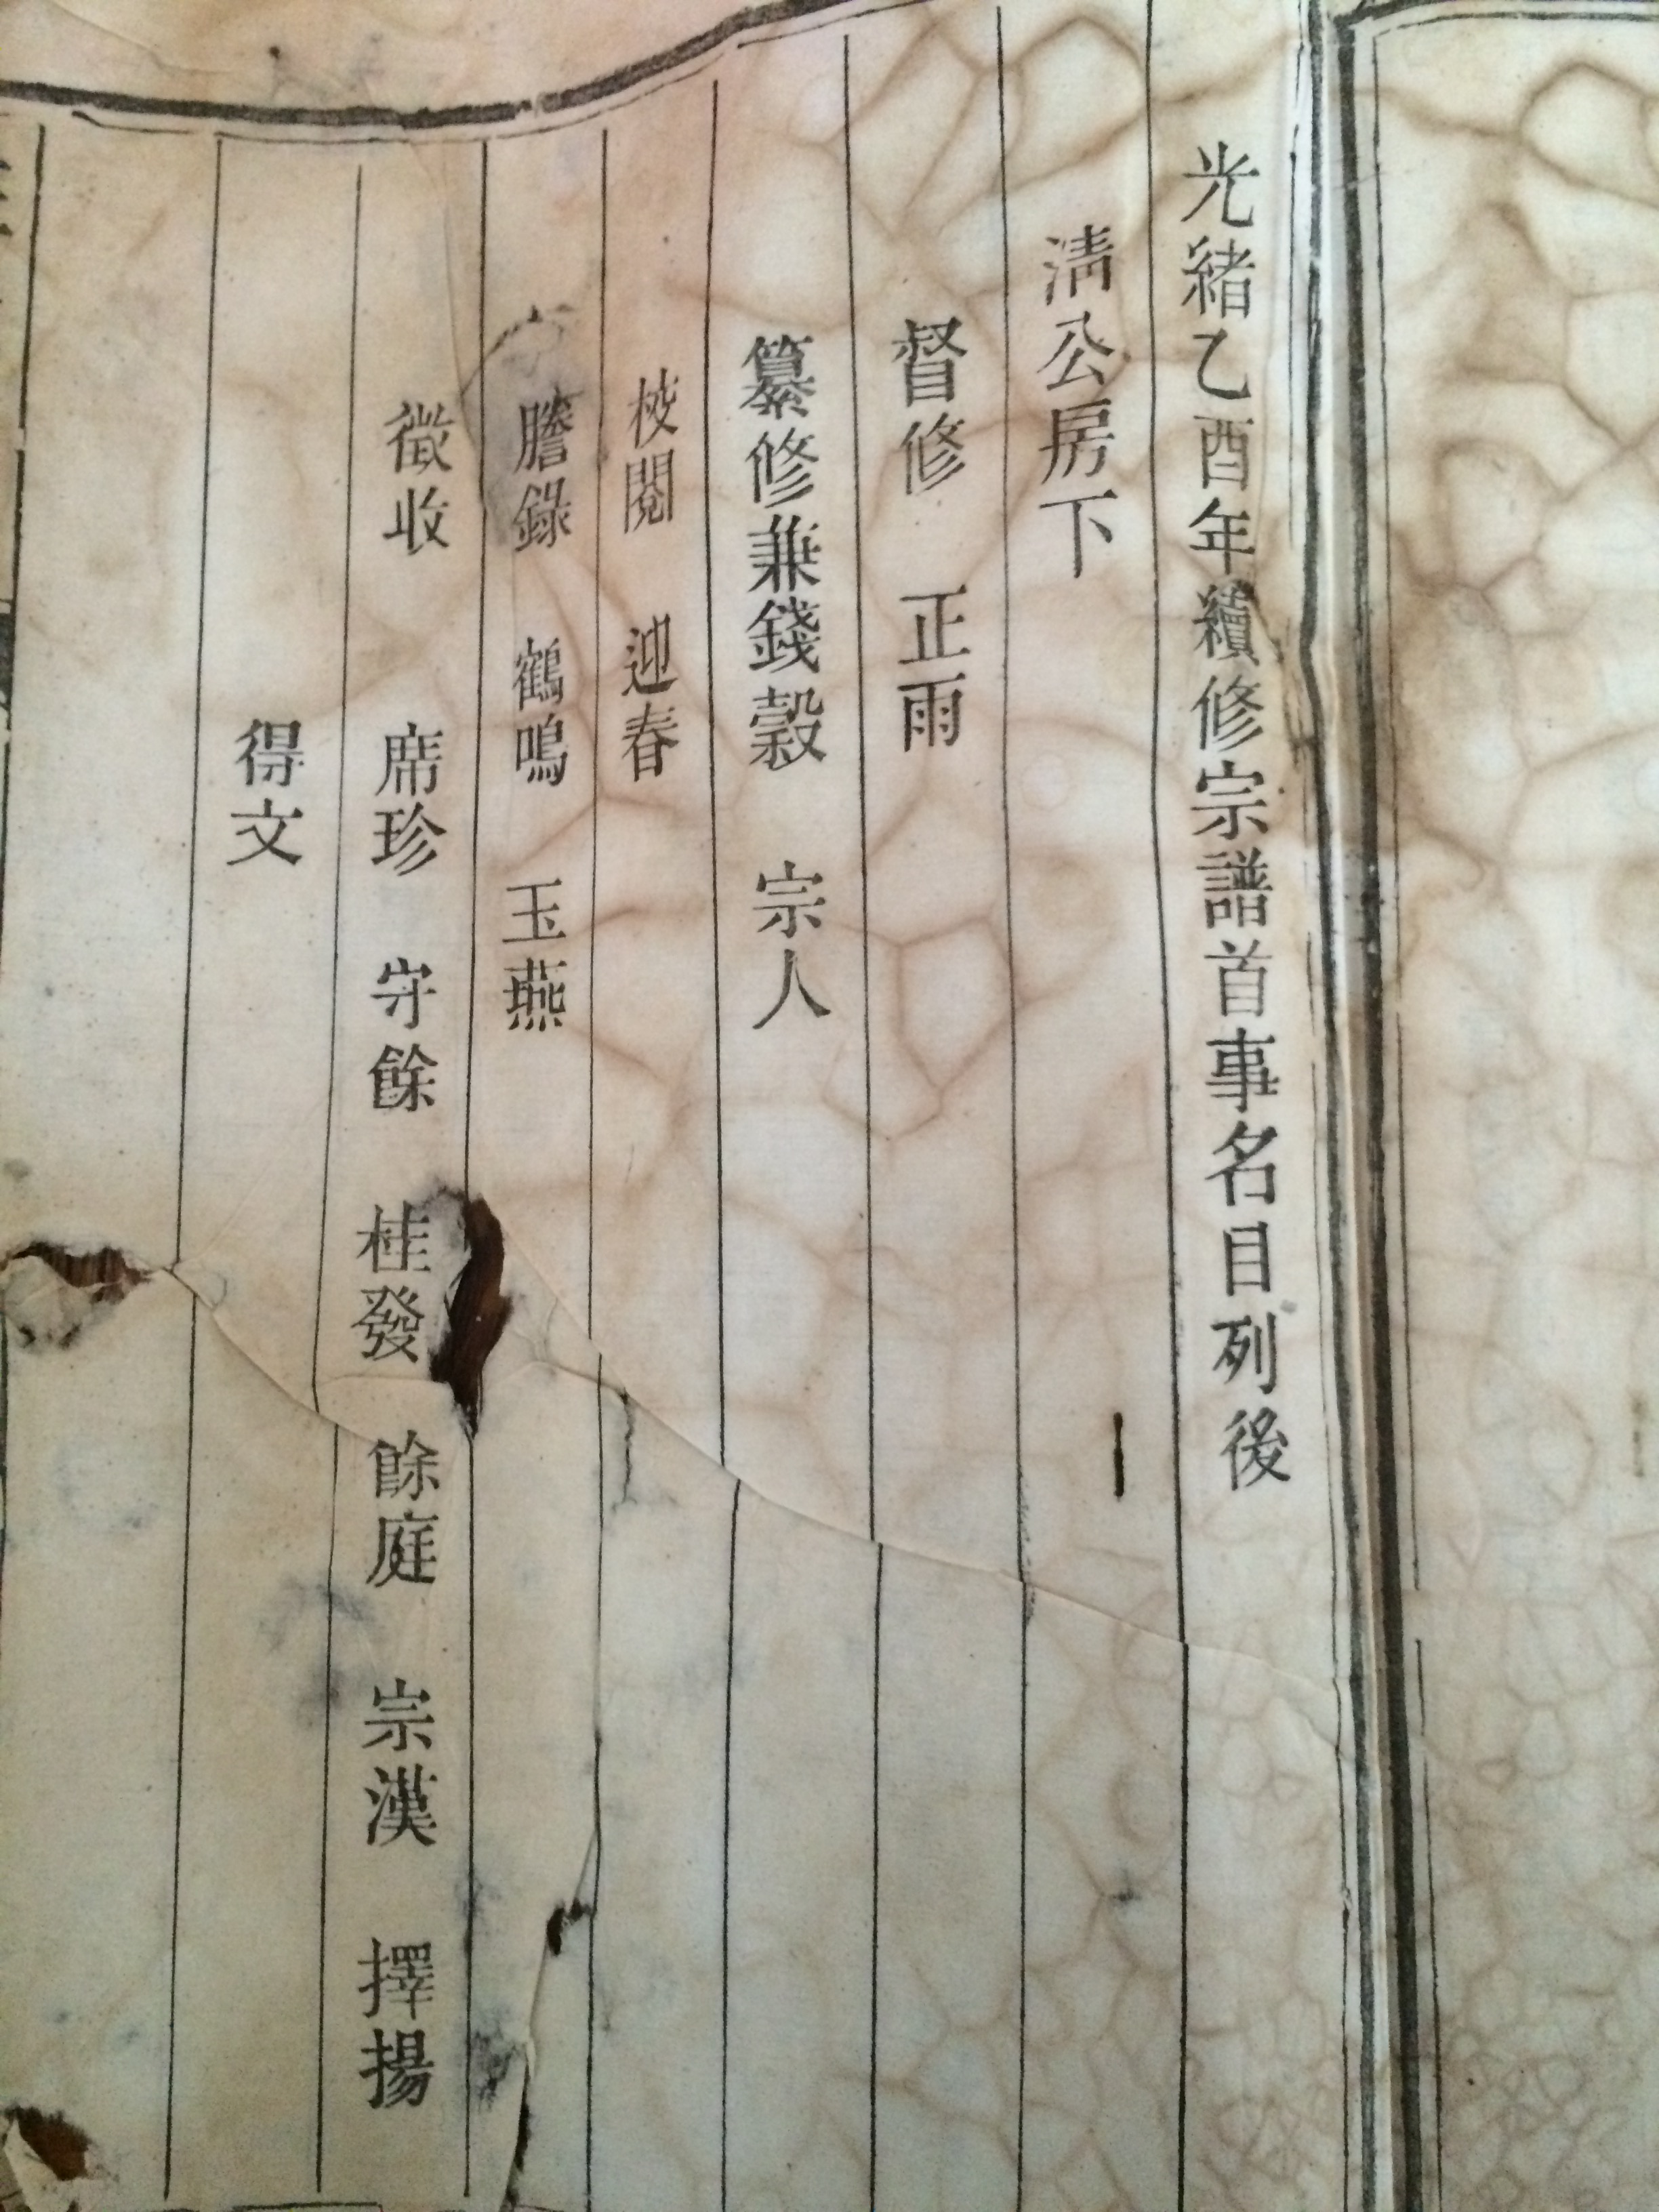 光緒乙酉年續修宗譜首事名目列後
淸公房下
督修 正雨
纂修兼錢穀 宗人
校閱 迎春
謄錄 鶴鳴 玉燕
徵收 席珍 守餘 桂發 餘庭 宗漢 擇揚
得文